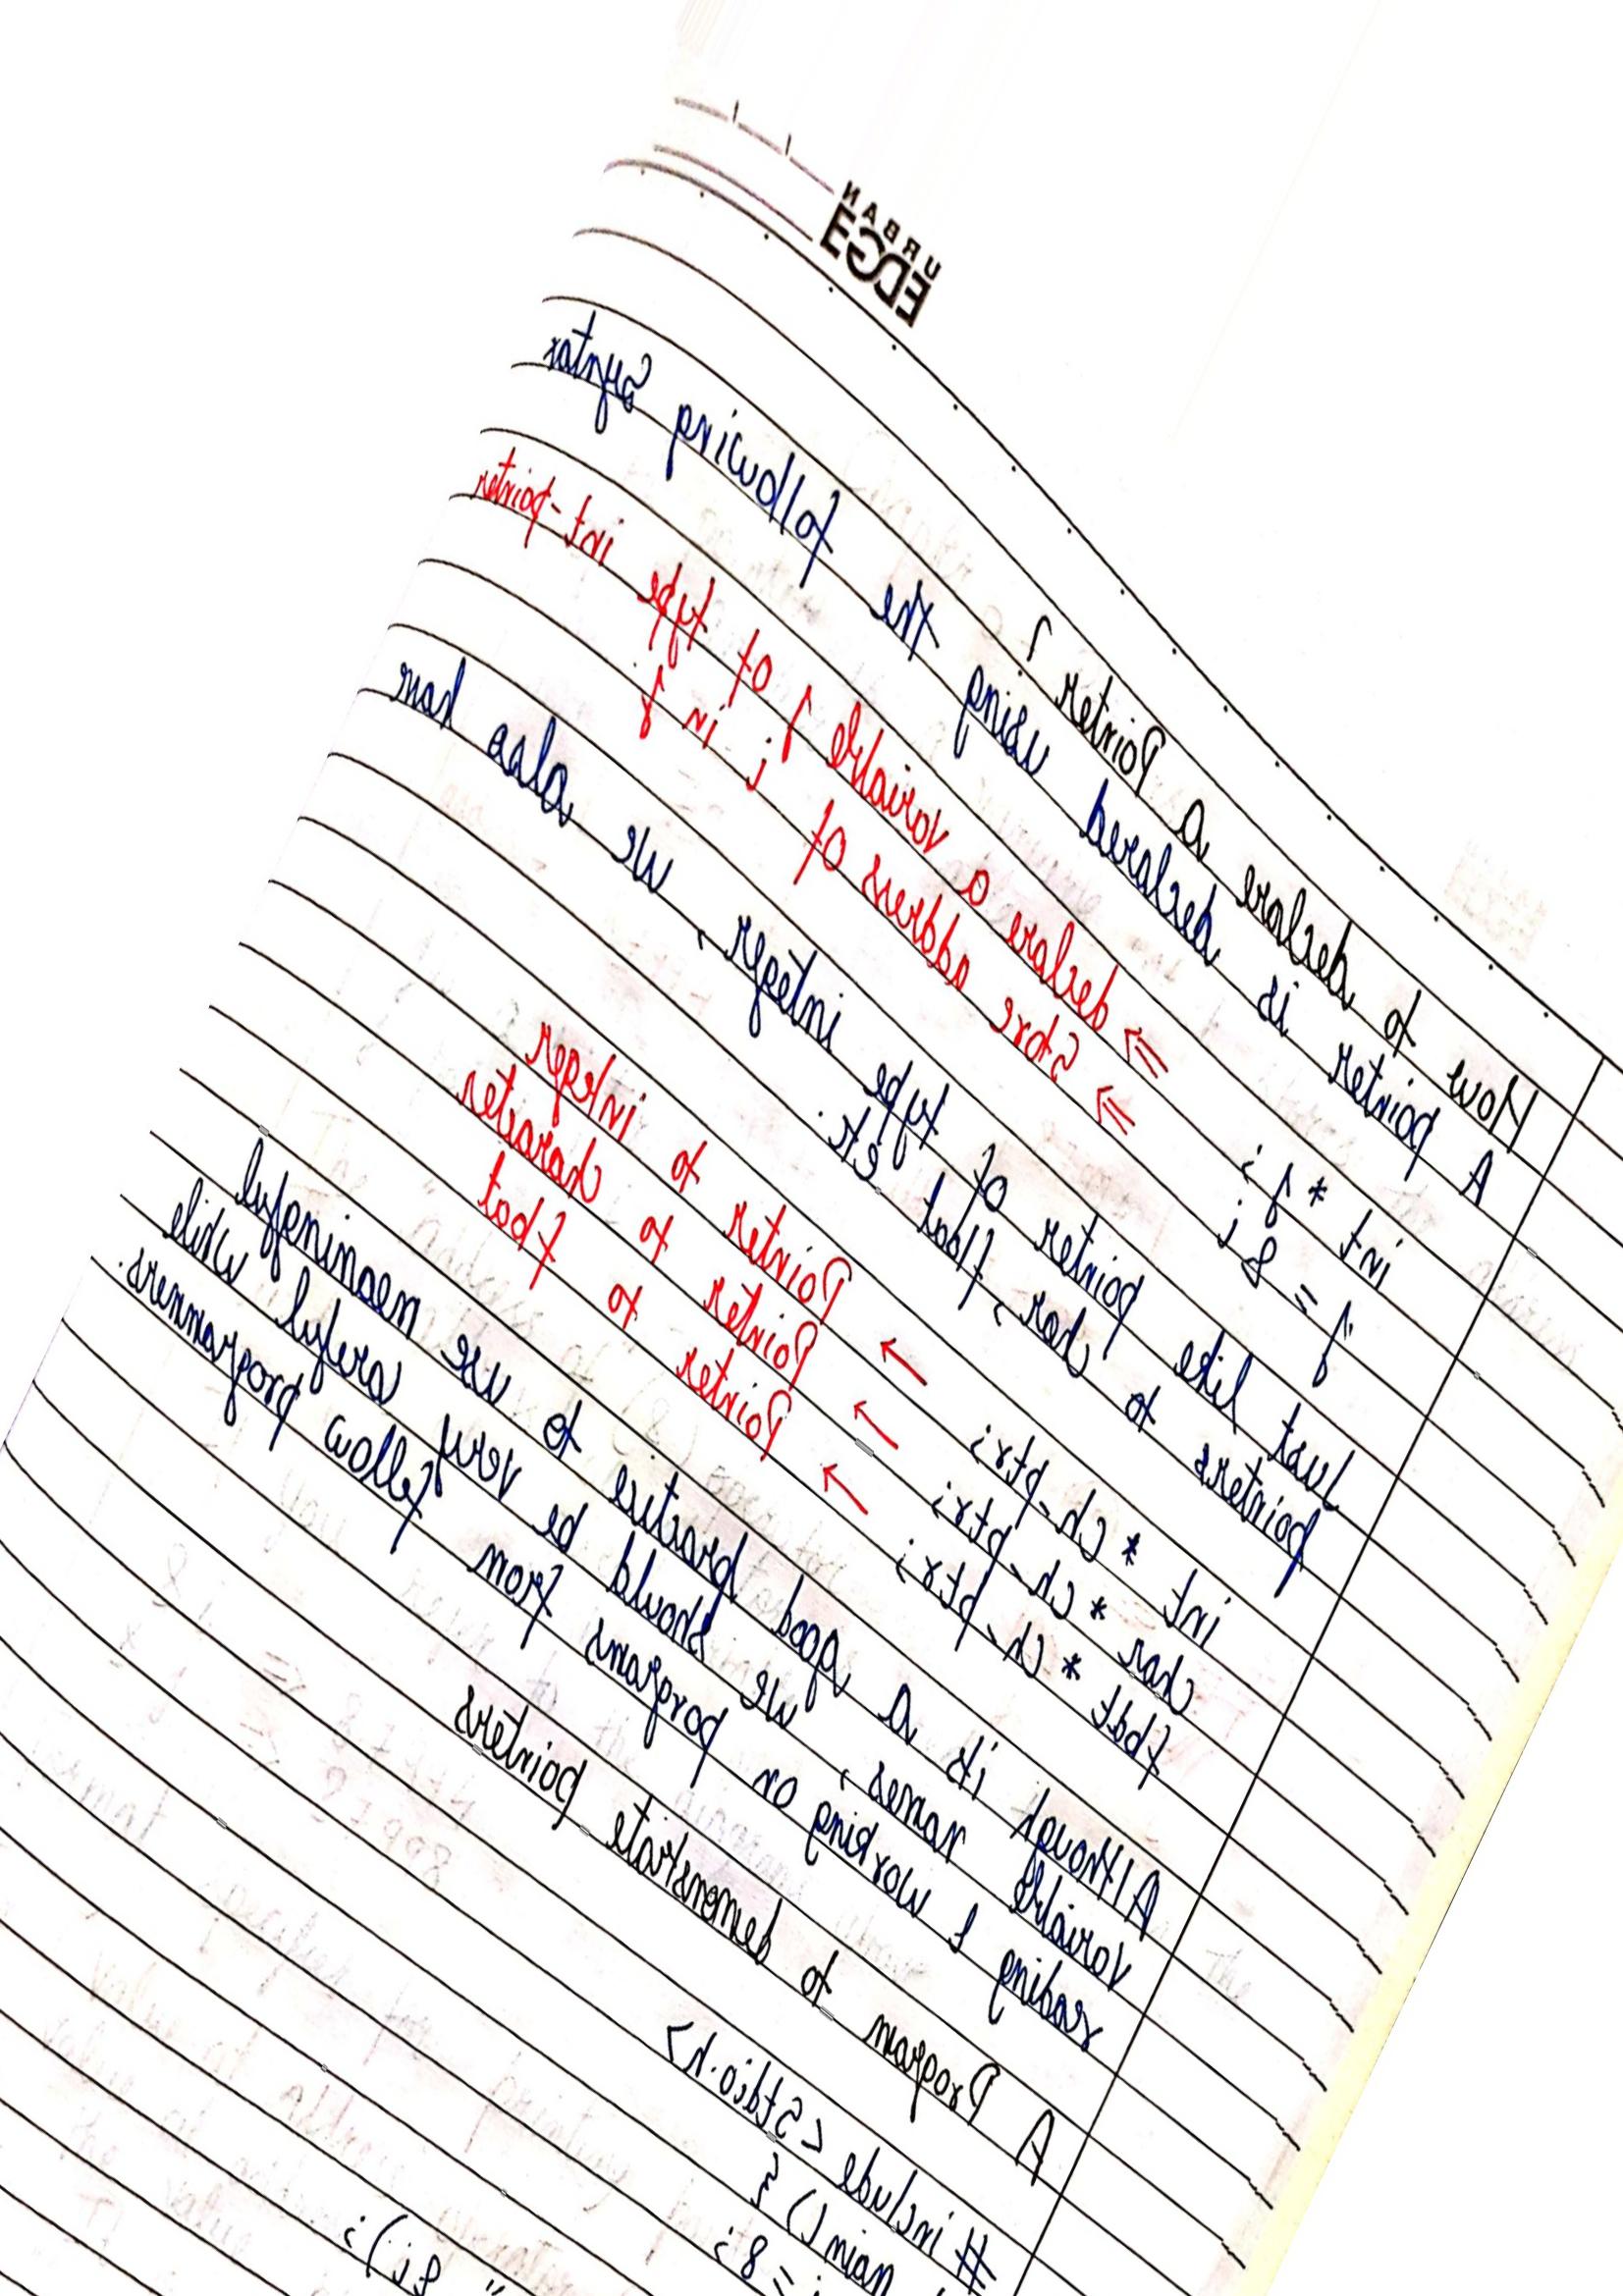 URBAN
EDGE
How to declare a Pointer ?
A pointer is declared using the following Syntax
int *j; ⇒ declare a variable j of type int-pointer
j = &i ⇒ Store address of i in j
Just like pointer of type integer, we also have
pointers to char, float etc.
int *ch-ptr; → Pointer to integer
char *ch-ptr; → Pointer to character
float *ch-ptr; → Pointer to float
Although its a good practice to use meaningful
variable names, we should be very careful while
reading & working on programs from fellow programmers.
A Program to demonstrate pointers
# include <Stdio.h>
main() {
= 8;
" &i);